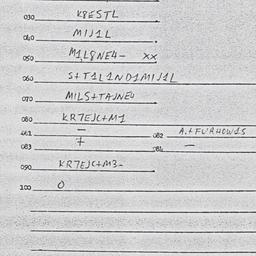 030 K8ESTL
040 MIJ1L
050 M1L8NE4- XX
060 S+T1L1ND1MIJ1L
070 MILS+TAJNE4
080 KR7EJC+M1
081 - 082 A.+FURHOW1S
083 + 084 -
090 KR7EJC+M3-
100 0